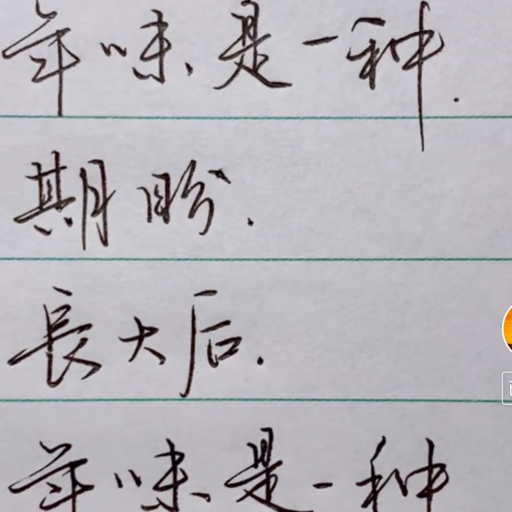 年味是一种.
期盼.
長大后.
年味是一种